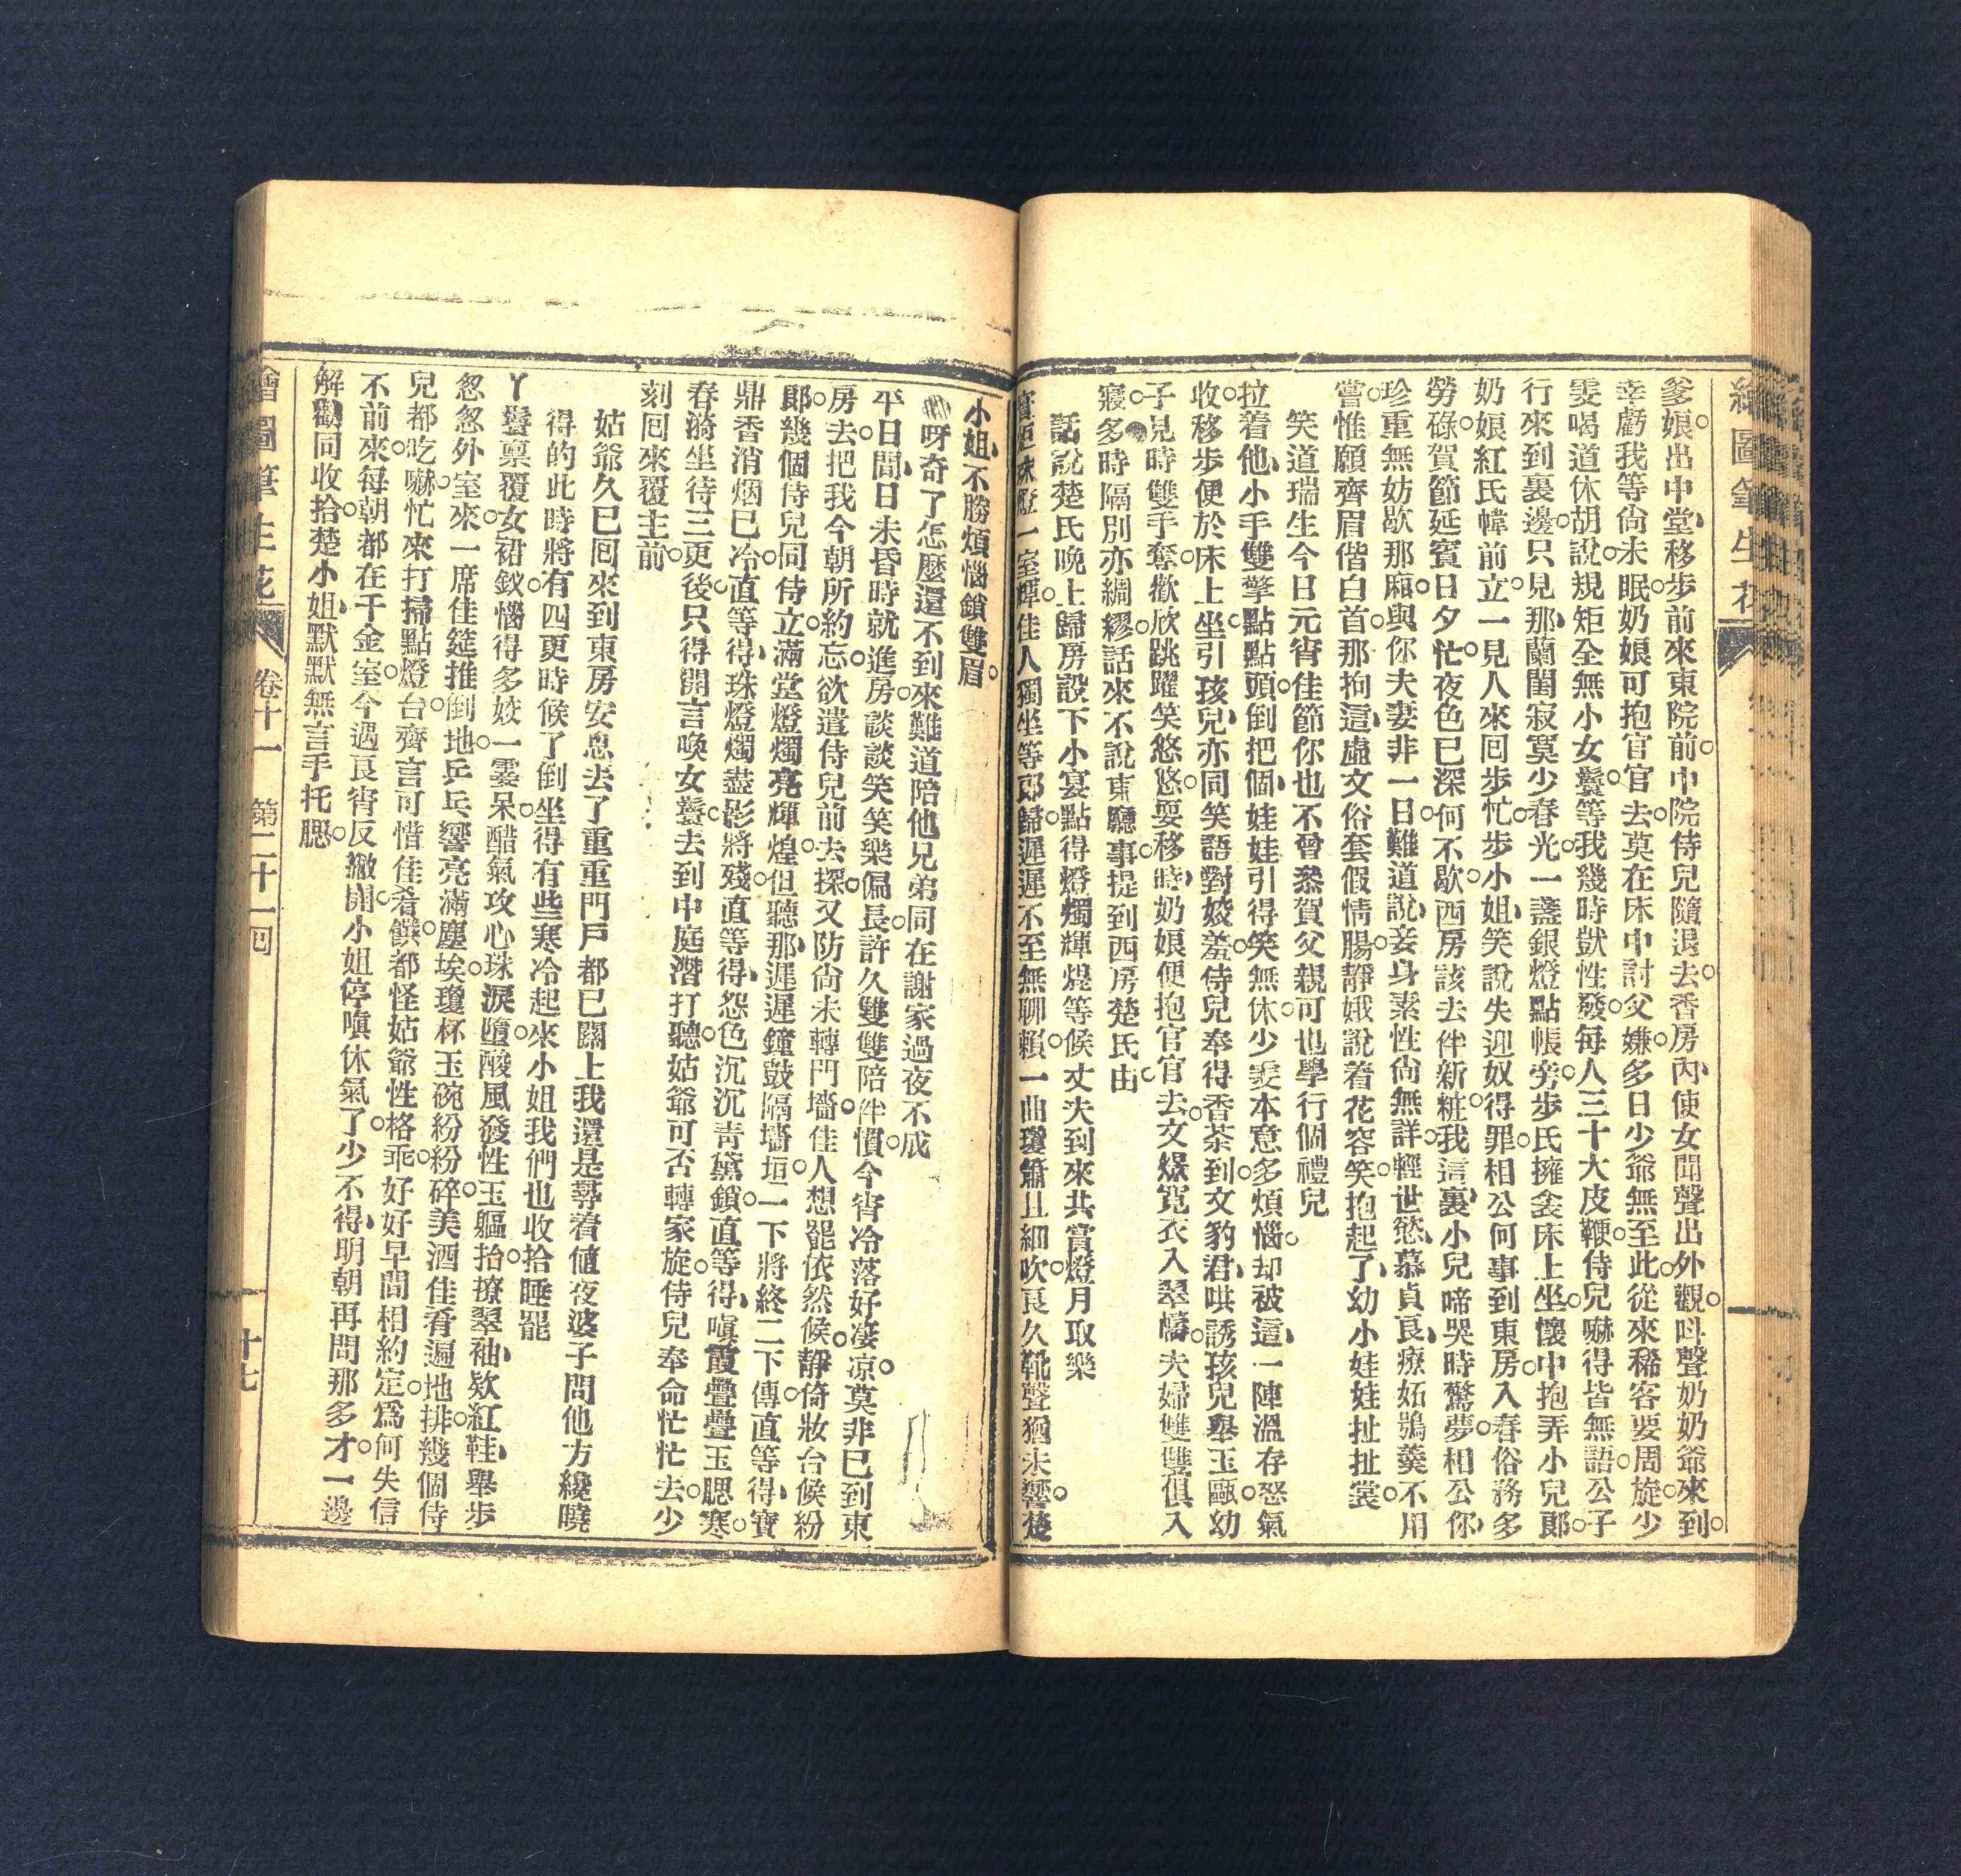 繪圖筆生花
爹娘出中堂移步前來東院前。中院侍兒隨退去。香房內使女聞聲出外觀。呌聲奶奶爺來到。
幸虧我等尙未眠。奶娘可抱官官去。莫在床中討父嫌。多日少爺無至此。從來稀客要周旋。少
雯喝道休胡說。規矩全無小女鬟。等我幾時獃性發。每人三十大皮鞭。侍兒嚇得皆無語。公子
行來到裏邊。只見那蘭閨寂寞少春光。一盞銀燈點帳旁。步氏擁衾床上坐。懷中抱弄小兒郞。
奶娘紅氏幃前立。一見人來回步忙。步小姐笑說失迎奴得罪。相公何事到東房。入春俗務多
勞碌。賀節延賓日夕忙。夜色已深何不歇。西房該去伴新粧。我這裏小兒啼哭時驚夢。相公你
珍重無妨歇那廂。與你夫妻非一日。難道說妾身素性尙無詳。輕世慾慕貞良。療妬鴞羹不用
嘗。惟願齊眉偕白首。那拘這虛文俗套假情腸。靜娥說着花容笑。抱起了幼小娃娃扯扯裳。
笑道瑞生今日元宵佳節你也不曾叅賀父親可也學行個禮兒
拉着他小手雙擎點點頭。倒把個娃娃引得笑無休。少雯本意多煩惱。却被這一陣溫存怒氣
收。移步便於床上坐。引孩兒亦同笑語對姣羞。侍兒奉得香茶到。文豹君哄誘孩兒舉玉甌。幼
子兒時雙手奪。歡欣跳躍笑悠悠。耍移時奶娘便抱官官去。文孃寬衣入翠幬。夫婦雙雙俱入
寢。多時隔別亦綢繆。話來不說東廳事。提到西房楚氏由。
話說楚氏晚上歸房設下小宴點得燈燭輝煌等候丈夫到來共賞燈月取樂
一室輝。佳人獨坐等郞歸。遲遲不至無聊賴。一曲瓊簫且細吹。良久靴聲猶未響。楚
小姐不勝煩惱鎖雙眉。
呀奇了怎麼還不到來難道陪他兄弟同在謝家過夜不成
平日間日未昏時就進房。談談笑笑樂偏長。許久雙雙陪伴慣。今宵冷落好凄凉。莫非已到東
房去。把我今朝所約忘。欲遣侍兒前去探。又防尙未轉門墻。佳人想罷依然候。靜倚妝台候紛
郞。幾個侍兒同侍立。滿堂燈燭亮輝煌。但聽那遲遲鐘鼓隔墻垣。一下將終二下傳。直等得寶
鼎香消烟已冷。直等得珠燈燭盡影將殘。直等得怨色沉沉靑黛鎖。直等得嗔霞疊疊玉腮寒。
春漪坐待三更後。只得開言喚女鬟。去到中庭潛打聽。姑爺可否轉家旋。侍兒奉命忙忙去。少
刻囘來覆主前。
姑爺久已囘來到東房安息去了重重門戶都已關上我還是尋着値夜婆子問他方纔曉
得的此時將有四更時候了倒坐得有些寒冷起來小姐我們也收拾睡罷
丫鬟稟覆女裙釵。惱得多姣一霎呆。醋氣攻心珠淚墮。酸風發性玉軀抬。撩翠袖欵紅鞋。舉步
忽忽外室來。一席佳筵推倒地。乒乓響亮滿塵埃。瓊杯玉碗紛紛碎。美酒佳肴遍地排。幾個侍
兒都吃嚇。忙來打掃點燈台。齊言可惜佳肴饌。都怪姑爺性格乖。好好早間相約定。爲何失信
不前來。每朝都在千金室。今遇良宵反撇開。小姐停嗔休氣了。少不得明朝再問那多才。一邊
解勸同收拾。楚小姐默默無言手托腮。
繪圖筆生花　卷十一　第二十一回　十七